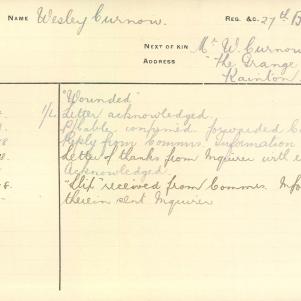 NAME Wesley Curnow. REG. &C. 27th B
NEXT OF KIN Mr W. Curnow
ADDRESS "The Grange
Rainton
"Wounded"
1/2. Letter acknowledged.
confirmed forwarded C
Reply from Commrs. Information
Letter of thanks from Inquirer with e
Acknowledged.
"Slip" received from Commrs. Info
therein sent Inquirer